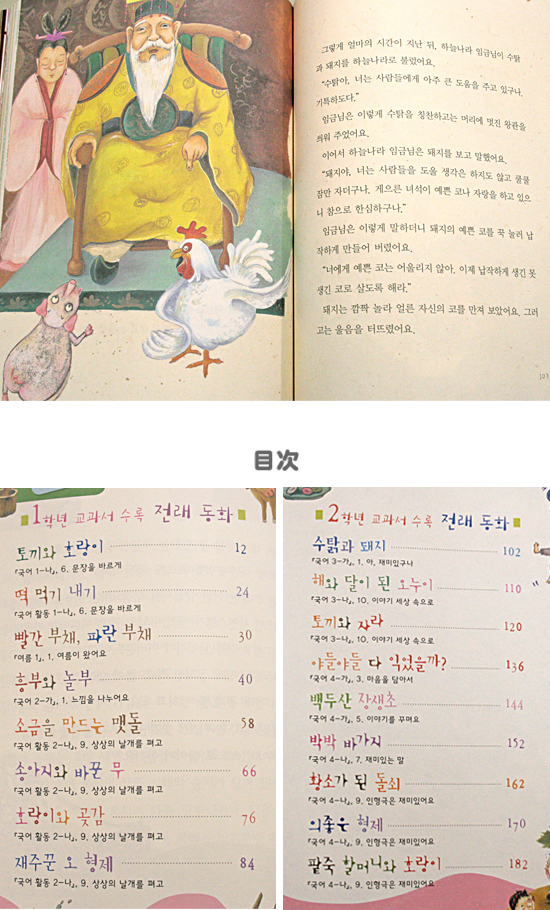 그렇게 얼마의 시간이 지난 뒤, 하늘나라 임금님이 수탉
과 돼지를 하늘나라로 불렀어요.
"수탉아, 너는 사람들에게 아주 큰 도움을 주고 있구나.
기특하도다."
임금님은 이렇게 수탉을 칭찬하고는 머리에 멋진 왕관을
씌워 주었어요.
이어서 하늘나라 임금님은 돼지를 보고 말했어요.
"돼지야, 너는 사람들을 도울 생각은 하지도 않고 쿨쿨
잠만 자더구나. 게으른 녀석이 예쁜 코나 자랑을 하고 있으
니 참으로 한심하구나."
임금님은 이렇게 말하더니 돼지의 예쁜 코를 꾹 눌러 납
작하게 만들어 버렸어요.
"너에게 예쁜 코는 어울리지 않아. 이제 납작하게 생긴 못
생긴 코로 살도록 해라."
돼지는 깜짝 놀라 얼른 자신의 코를 만져 보았어요. 그러
고는 울음을 터뜨렸어요.
107
目次
1학년 교과서 수록 전래 동화
토끼와 호랑이 12
『국어 1-나』, 6. 문장을 바르게
떡 먹기 내기 24
『국어 활동 1-나』, 6. 문장을 바르게
빨간 부채, 파란 부채 30
『여름 1』, 1. 여름이 왔어요
흥부와 놀부 40
『국어 2-가』, 1. 느낌을 나누어요
소금을 만드는 맷돌 58
『국어 활동 2-나』, 9. 상상의 날개를 펴고
송아지와 바꾼 무 66
『국어 활동 2-나』, 9. 상상의 날개를 펴고
호랑이와 곶감 76
『국어 활동 2-나』, 9. 상상의 날개를 펴고
재주꾼 오 형제 84
『국어 활동 2-나』, 9. 상상의 날개를 펴고
2학년 교과서 수록 전래 동화
수탉과 돼지 102
『국어 3-가』, 1. 아, 재미있구나
해와 달이 된 오누이 110
『국어 3-나』, 10. 이야기 세상 속으로
토끼와 자라 120
『국어 3-나』, 10. 이야기 세상 속으로
야들야들 다 익었을까? 136
『국어 4-가』, 3. 마음을 담아서
백두산 장생초 144
『국어 4-가』, 5. 이야기를 꾸며요
박박 바가지 152
『국어 4-나』, 7. 재미있는 말
황소가 된 돌쇠 162
『국어 4-나』, 9. 인형극은 재미있어요
의좋은 형제 170
『국어 4-나』, 9. 인형극은 재미있어요
팥죽 할머니와 호랑이 182
『국어 4-나』, 9. 인형극은 재미있어요